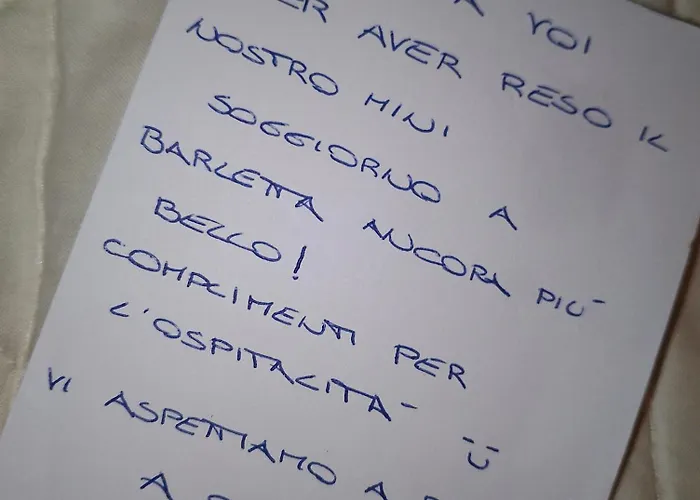 A VOI
PER AVER RESO IL
NOSTRO MINI
SOGGIORNO A
BARLETTA ANCORA PIÙ
BELLO!
COMPLIMENTI PER
L'OSPITALITÀ Ü
VI ASPETTIAMO A
A